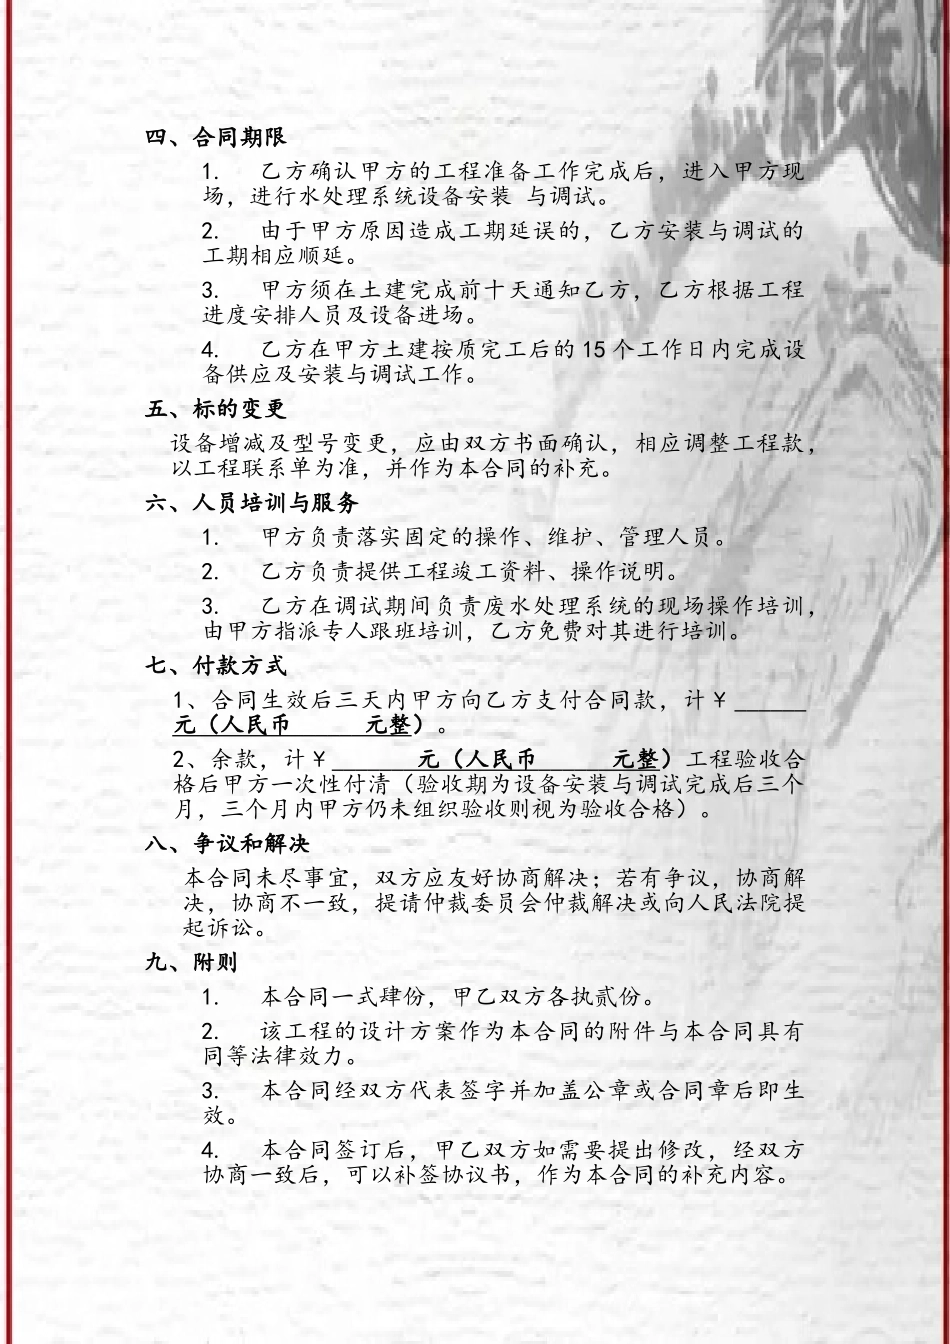 四、合同期限
1. 乙方确认甲方的工程准备工作完成后，进入甲方现
场，进行水处理系统设备安装 与调试。
2. 由于甲方原因造成工期延误的，乙方安装与调试的
工期相应顺延。
3. 甲方须在土建完成前十天通知乙方，乙方根据工程
进度安排人员及设备进场。
4. 乙方在甲方土建按质完工后的 15 个工作日内完成设
备供应及安装与调试工作。
五、标的变更
设备增减及型号变更，应由双方书面确认，相应调整工程款，
以工程联系单为准，并作为本合同的补充。
六、人员培训与服务
1. 甲方负责落实固定的操作、维护、管理人员。
2. 乙方负责提供工程竣工资料、操作说明。
3. 乙方在调试期间负责废水处理系统的现场操作培训，
由甲方指派专人跟班培训，乙方免费对其进行培训。
七、付款方式
1、合同生效后三天内甲方向乙方支付合同款，计￥______
元（人民币      元整）。
2、余款，计￥_______元（人民币      元整）工程验收合
格后甲方一次性付清（验收期为设备安装与调试完成后三个
月，三个月内甲方仍未组织验收则视为验收合格）。
八、争议和解决
本合同未尽事宜，双方应友好协商解决；若有争议，协商解
决，协商不一致，提请仲裁委员会仲裁解决或向人民法院提
起诉讼。
九、附则
1. 本合同一式肆份，甲乙双方各执贰份。
2. 该工程的设计方案作为本合同的附件与本合同具有
同等法律效力。
3. 本合同经双方代表签字并加盖公章或合同章后即生
效。
4. 本合同签订后，甲乙双方如需要提出修改，经双方
协商一致后，可以补签协议书，作为本合同的补充内容。